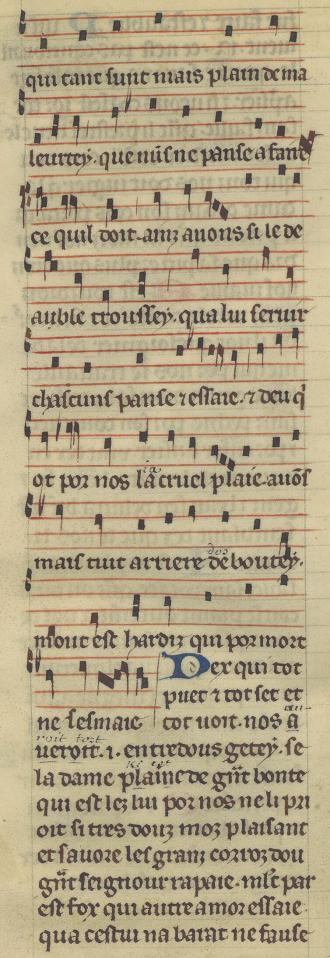 qui tant sunt mais plain de ma
leurtey. que nuns ne panse a faire
ce quil doit. ainz auons si le de
auble troussey. qua lui seruir
chascuns panse ⁊ essaie. ⁊ deu q̓
ot por nos la cruel plaie. auōs
mais tuit arriere deboutey.
mout est hardiz qui por mort
ne sesmaie
Dex qui tot
puet ⁊ tot set et
tot uoit. nos a
ueroit .i. entredous getey. se
la dame plainne de gn̄t bonte
qui est lez lui por nos ne li pri
oit si tres douz moz plaisant
et sauore les granz corroz dou
gn̄t seignour rapaie. ml̄t par
est fox qui autre amor essaie.
qua cestui na barat ne fause